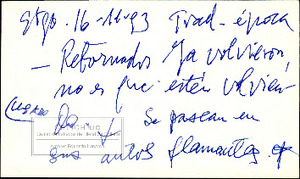 Stgo. 16-11-93 Trad-época
— Reformados Ya volvieron,
no es que estén volvien-
do. y Se pasean en
sus autos flamantes